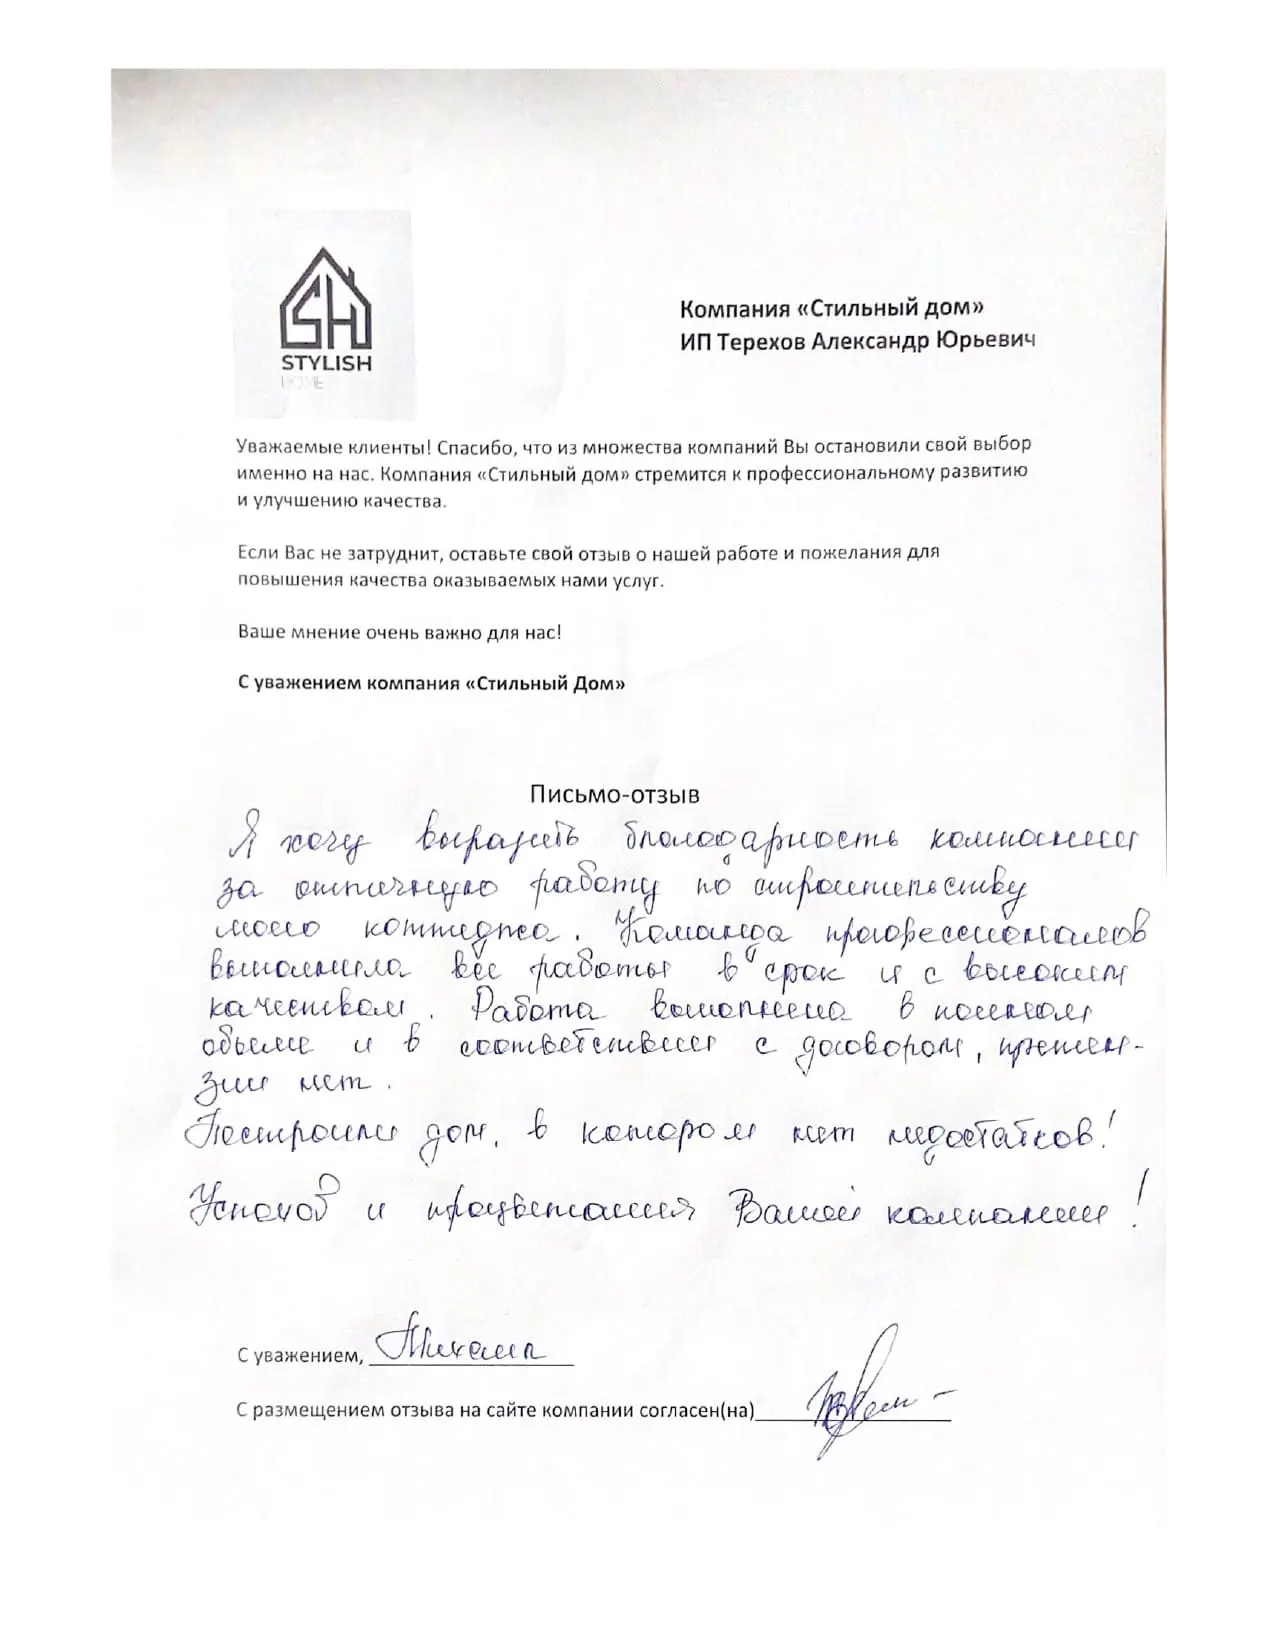 SH
STYLISH
HOME
Компания «Стильный дом»
ИП Терехов Александр Юрьевич
Уважаемые клиенты! Спасибо, что из множества компаний Вы остановили свой выбор
именно на нас. Компания «Стильный дом» стремится к профессиональному развитию
и улучшению качества.
Если Вас не затруднит, оставьте свой отзыв о нашей работе и пожелания для
повышения качества оказываемых нами услуг.
Ваше мнение очень важно для нас!
С уважением компания «Стильный Дом»
Письмо-отзыв
Я хочу выразить благодарность компании
за отличную работу по строительству
моего коттеджа. Команда профессионалов
выполнила все работы в срок и с высоким
качеством. Работа выполнена в полном
объеме и в соответствии с договором, претен-
зии нет.
Построили дом, в котором нет недостатков!
Успехов и процветания Вашей компании!
С уважением, Михаил
С размещением отзыва на сайте компании согласен(на)